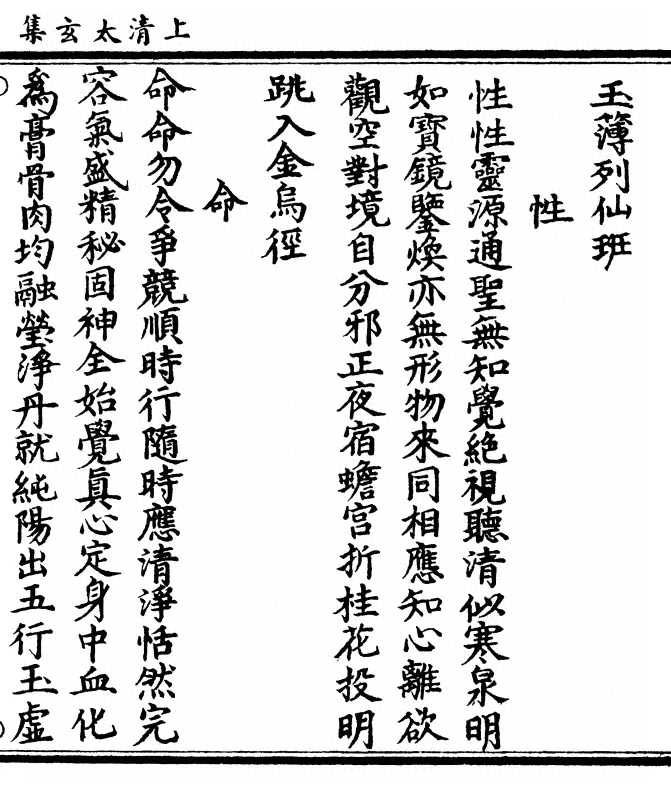 上清太玄集
玉簿列仙班
性
性性靈源通聖無知覺絕視聽清似寒泉明
如寶鏡鑒煥亦無形物來同相應知心離欲
觀空對境自分邪正夜宿蟾宮折桂花投明
跳入金烏徑
命
命命勿令爭競順時行隨時應清淨恬然完
容氣盛精秘固神全始覺眞心定身中血化
爲膏骨肉均融瑩淨丹就純陽出五行玉虛